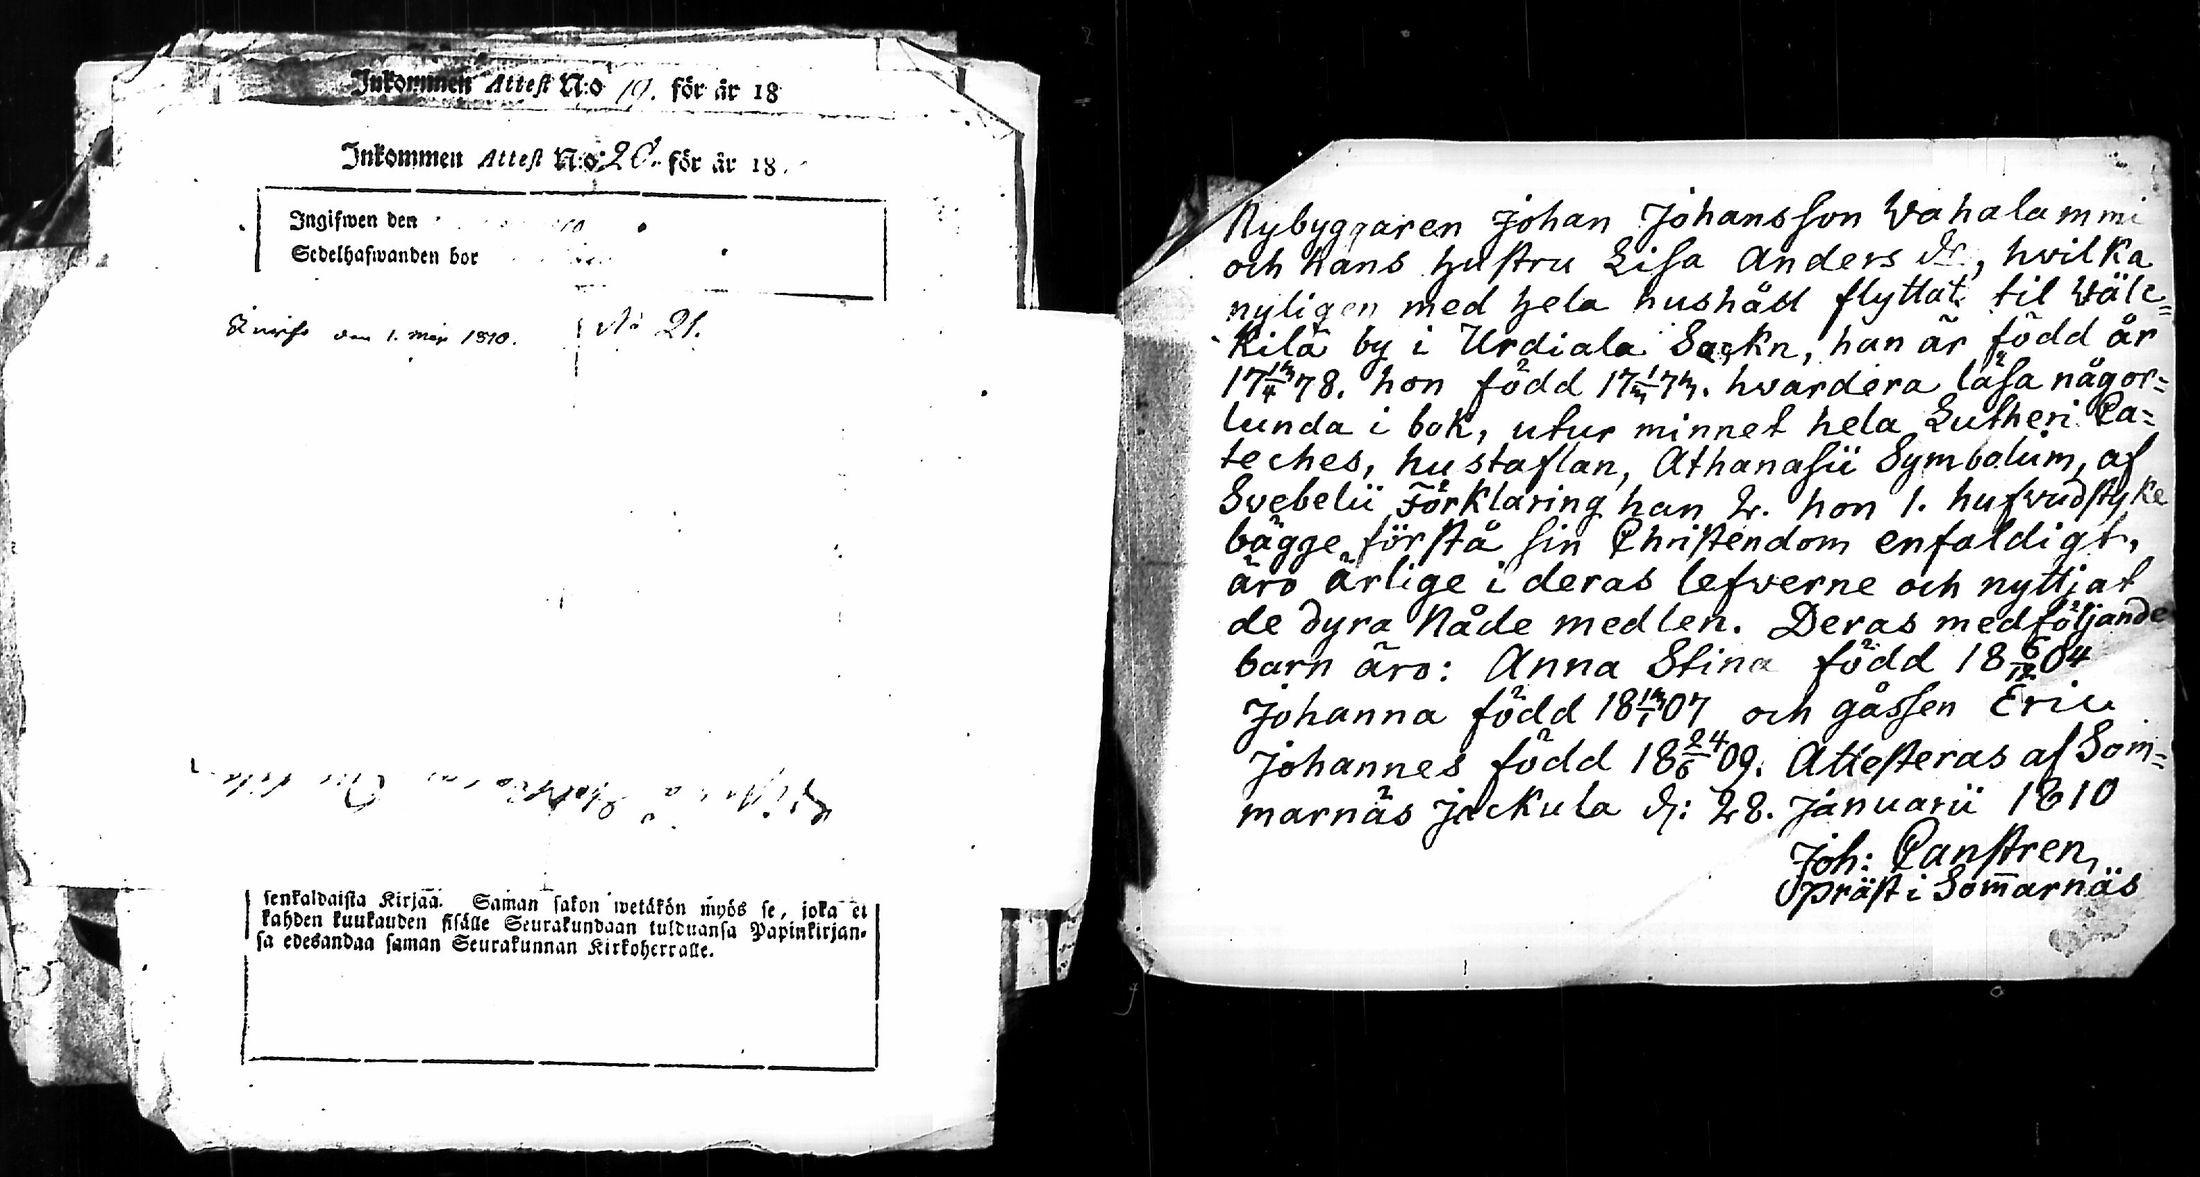 Inkommen Attest N:o 19. för år 18
Inkommen Attest N:o 20. för år 18
Ingifwen den
Sedelhafwanden bor
den 1. Maji 1810. No 21.
senkaldaista Kirjaa. Saman sakon wetäkön myös se, joka ei
kahden kuukauden sisälle Seurakundaan tulduansa Papinkirjan-
sa edesandaa saman Seurakunnan Kirkoherralle.
Nybyggaren Johan Johansson Wahalammi
och hans hustru Lisa Anders dr, hvilka
nyligen med hela hushåll flyttat til Wäle=
kilä by i Urdiala Sockn, han är född år
17 12/4 78. hon född 17 1/2 72. hvardera läsa någor=
lunda i bok, utur minnet hela Lutheri Ca=
teches, hustaflan, Athanasii Symbolum, af
Svebelii Förklaring han 2. hon 1. hufvudstyke
bägge förstå sin Christendom enfaldigt,
äro ärlige i deras lefverne och nyttjat
de dyra Nåde medlen. Deras medföljande
barn äro: Anna Stina född 18 6/12 04
Johanna född 18 12/1 07 och gåssen Eric
Johannes född 18 24/6 09. Attesteras af Som=
marnäs Jockula d: 28. Januarii 1810
Joh: Canstren,
Präst i Som̅arnäs